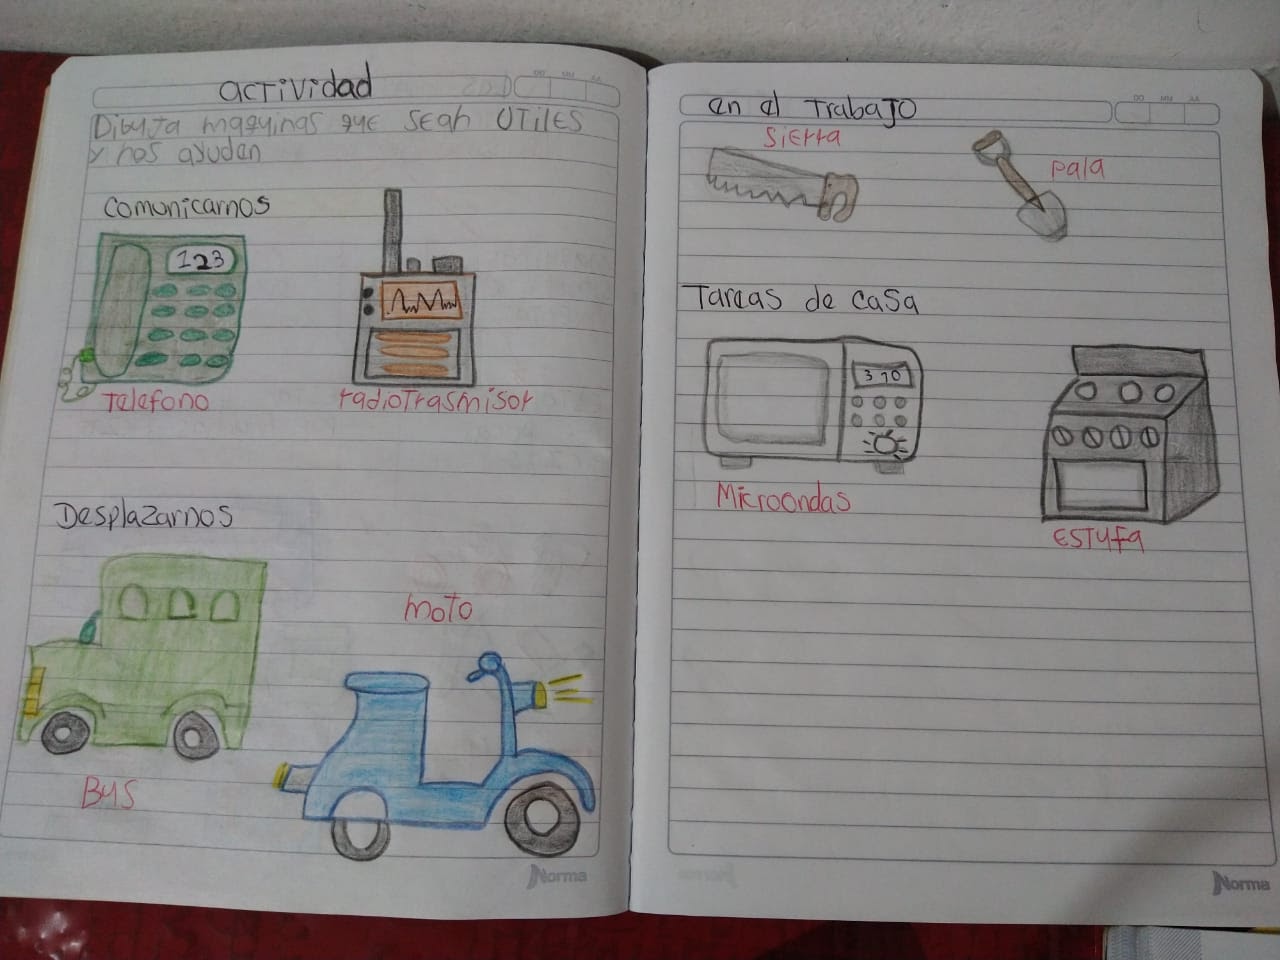 actividad
Dibuja maquinas que sean utiles
y nos ayuden
Comunicarnos
123
Telefono
radiotrasmisor
Desplazarnos
moto
Bus
Norma
en el Trabajo
Sierra
pala
Tareas de casa
310
Microondas
Estufa
Norma